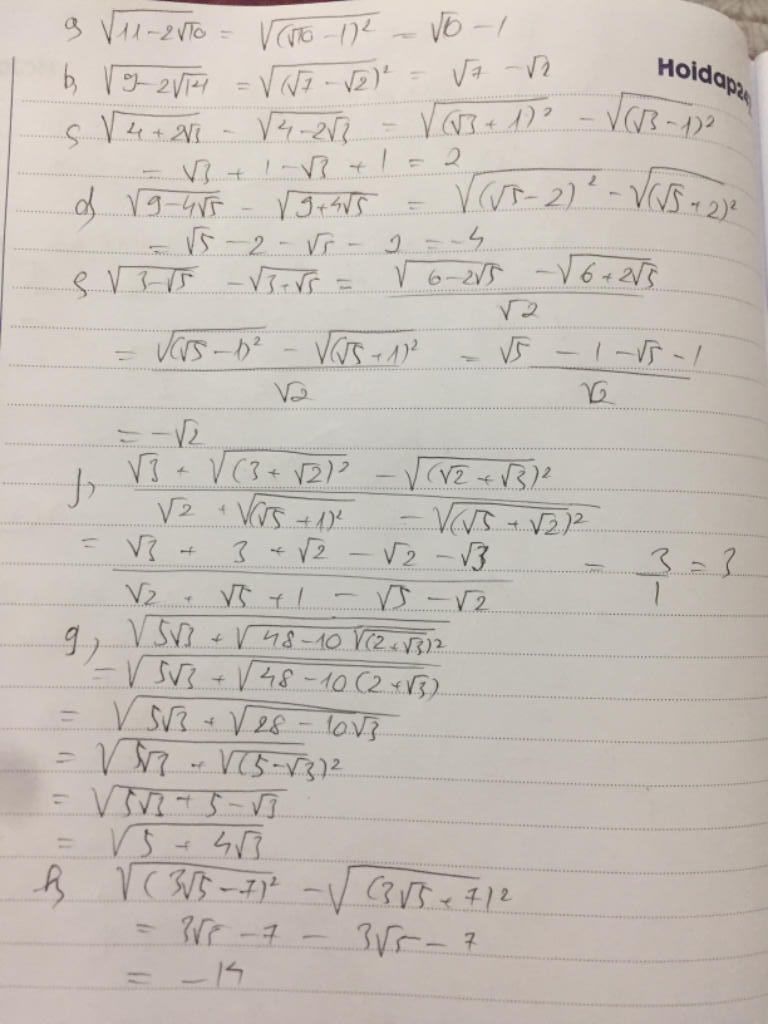 a) √(11-2√10) = √((√10-1)²) = √10 - 1
Hoidap24
b) √(9-2√14) = √((√7-√2)²) = √7 - √2
c) √(4+2√3) - √(4-2√3) = √((√3+1)²) - √((√3-1)²)
= √3 + 1 - √3 + 1 = 2
d) √(9-4√5) - √(9+4√5) = √((√5-2)²) - √((√5+2)²)
= √5 - 2 - √5 - 2 = -4
e) √(3-√5) - √(3+√5) = (√(6-2√5) - √(6+2√5))/√2
= (√((√5-1)²) - √((√5+1)²))/√2 = (√5 - 1 - √5 - 1)/√2
= -√2
f) (√3 + √((3+√2)²) - √((√2+√3)²))/(√2 + √((√5+1)²) - √((√5+√2)²))
= (√3 + 3 + √2 - √2 - √3)/(√2 + √5 + 1 - √5 - √2) = 3/1 = 3
g) √(5√3 + √(48-10√((2+√3)²)))
= √(5√3 + √(48-10(2+√3)))
= √(5√3 + √(28-10√3))
= √(5√3 + √((5-√3)²))
= √(5√3 + 5 - √3)
= √(5 + 4√3)
h) √((3√5-7)²) - √((3√5+7)²)
= 3√5 - 7 - 3√5 - 7
= -14